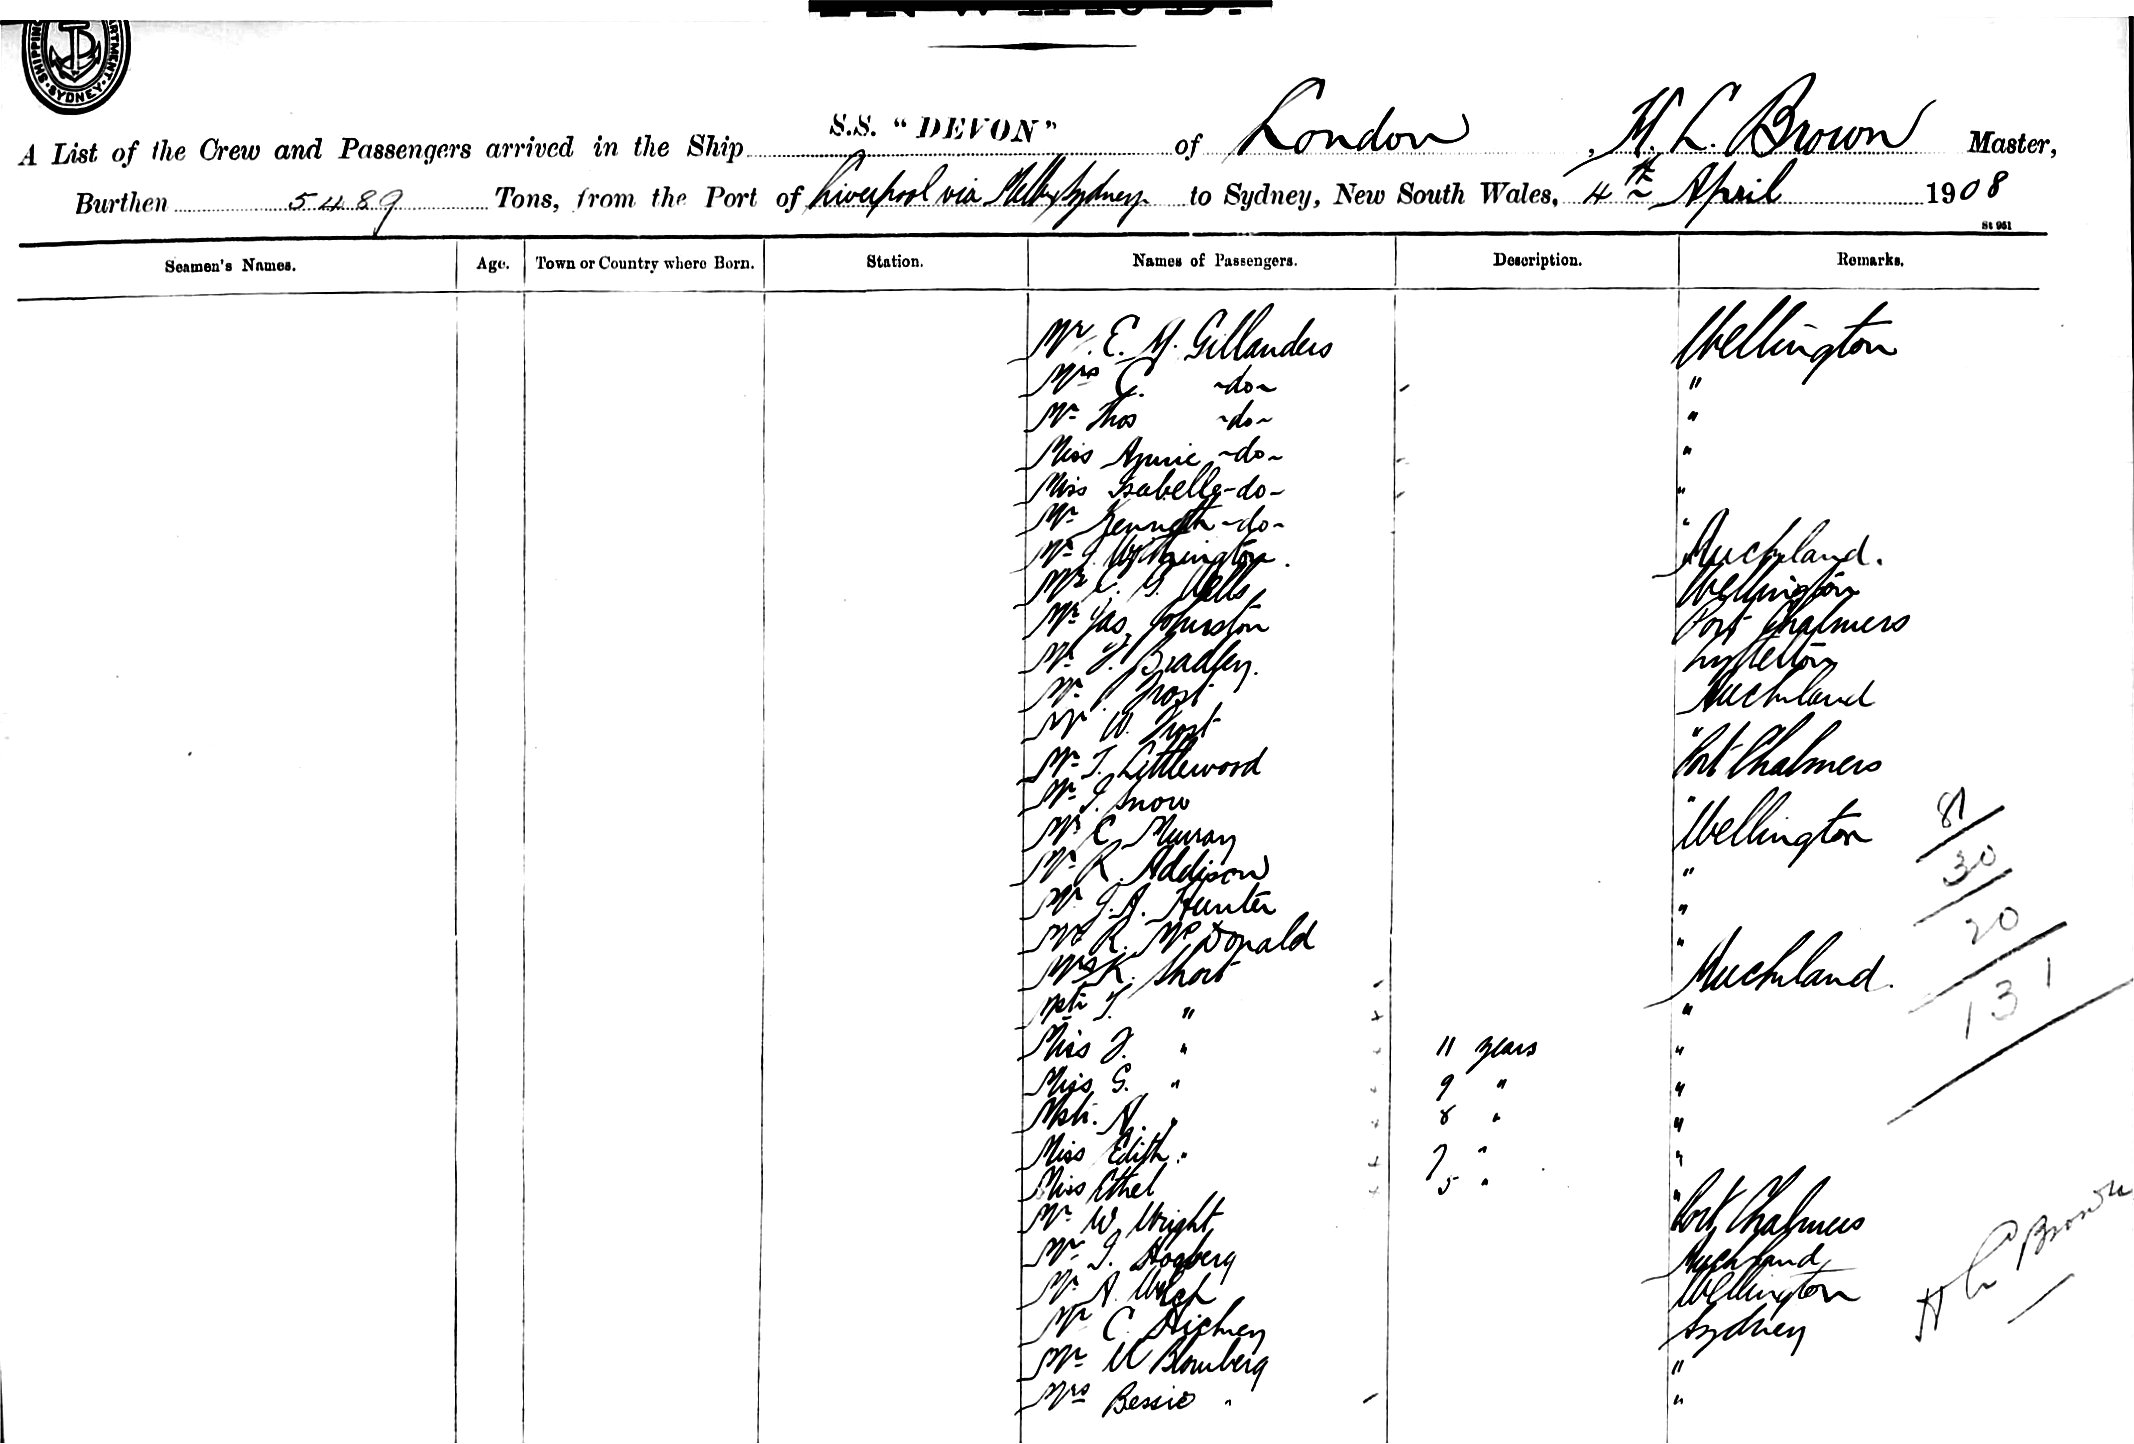 INWARD.
SHIPPING DEPARTMENT. SYDNEY
A List of the Crew and Passengers arrived in the Ship S.S. "DEVON" of London, H. L. Brown Master,
Burthen 5489 Tons, from the Port of Liverpool via Melb, Sydney to Sydney, New South Wales, 4th April 1908
St 951
Seamen's Names. Age. Town or Country where Born. Station. Names of Passengers. Description. Remarks.
Mr. E. M. Gillanders Wellington
Mrs C. -do- "
Mr Thos -do- "
Miss Annie -do- "
Miss Isabella -do- "
Mr Kenneth -do- "
Mr Auckland.
Mr C. G. Wells Wellington
Mr Jas Johnston Port Chalmers
Mr F. Bradley. Lyttelton
Mr Frost Auckland
Mr W. Frost "
Mr T. Littlewood Port Chalmers
Mr Snow "
Mr C. Murray Wellington 81
Mr R. Addison " 30
Mr J. A. Hunter " 20
Mr R. McDonald "
Mrs K. Short Auckland. 131
Mstr T. " "
Miss F. " 11 years "
Miss G. " 9 " "
Mstr. A. " 8 " "
Miss Edith " 7 " "
Miss Ethel 5 " "
Mr W. Wright Port Chalmers
Mr Hogberg Auckland
Mr A. Welch Wellington
Mr C. Hickney Sydney
Mr Blomberg "
Mrs Bessie " "
H L Brown